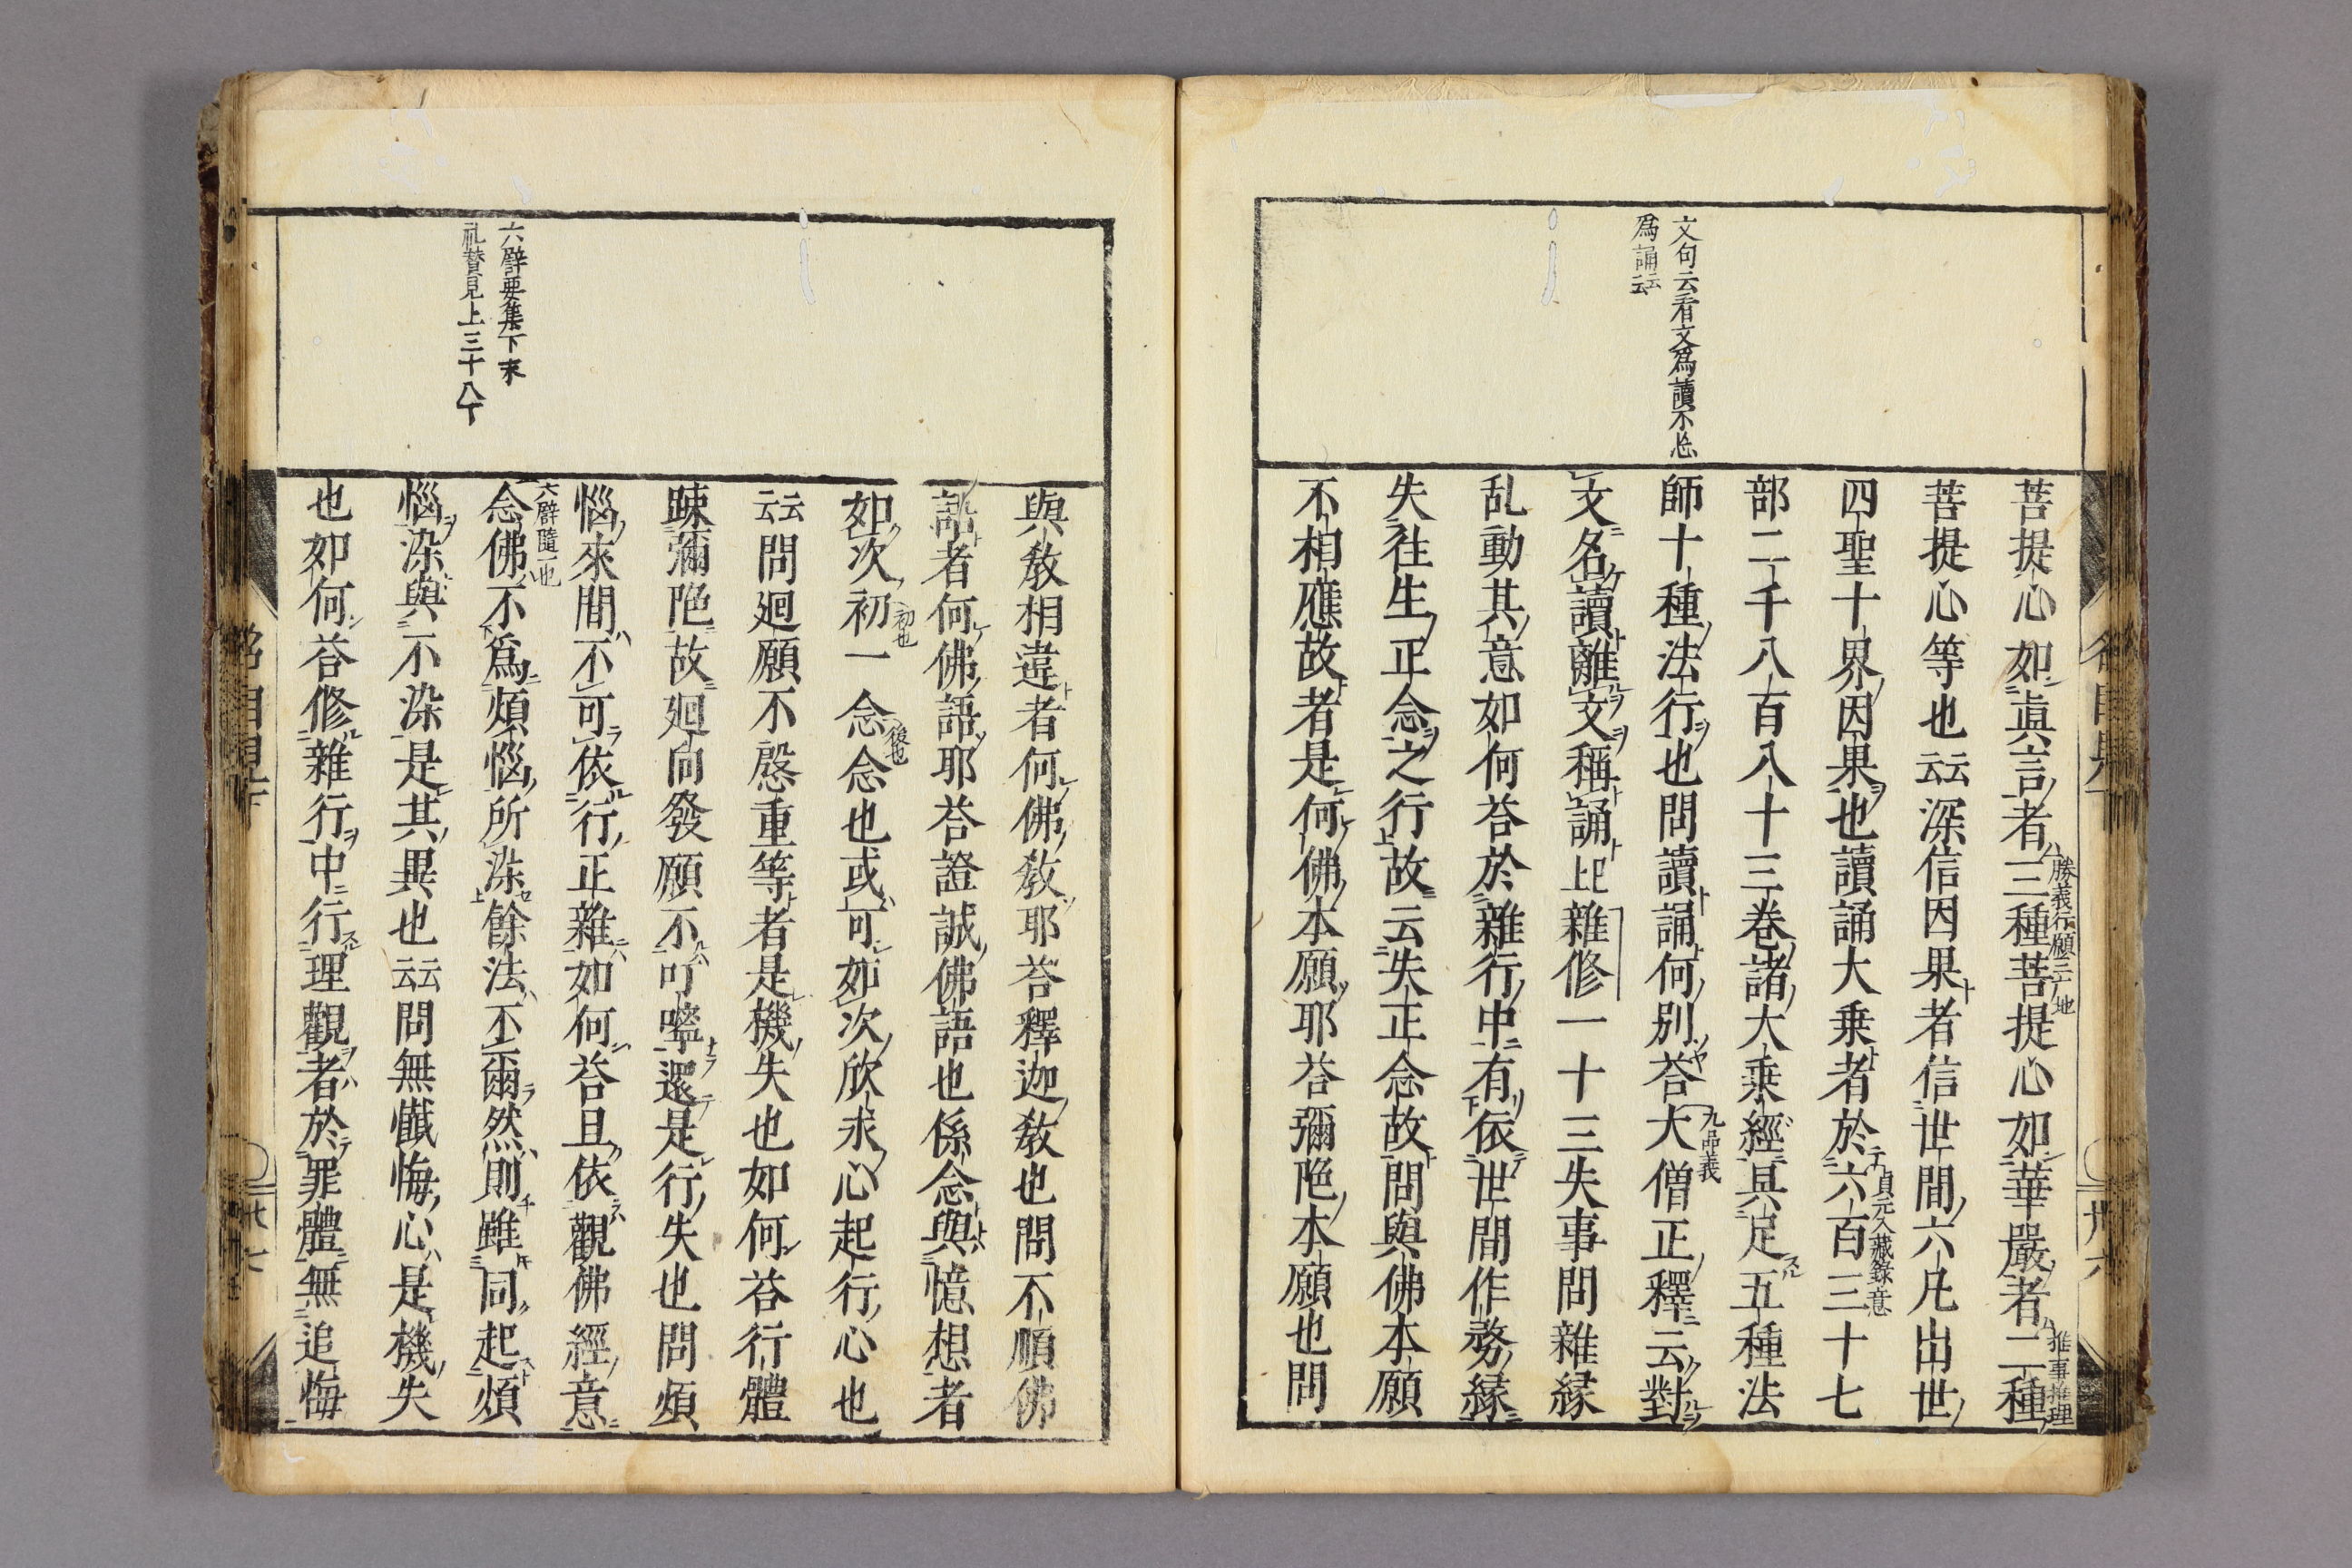 文句云看文爲讀不忘
爲誦云云
菩提心如眞言者三種菩提心如華嚴者二種
勝義行願三广地
推事推理
菩提心等也云云深信因果者信世間六凡出世
四聖十界因果也讀誦大乗者於六百三十七
貞元入藏錄意
部二千八百八十三卷諸大乗經具足五種法
師十種法行也問讀誦何別荅大僧正釋云對
九品義
文名讀離文稱誦上巳雜修一十三失事問雜縁
乱動其意如何荅於雜行中有依世間作務縁
失往生正念之行故云失正念故問與佛本願
不相應故者是何佛本願耶荅彌陁本願也問
六辟要集下末
礼賛見上三十八丁
與敎相違者何佛敎耶荅釋迦敎也問不順佛
語者何佛語耶荅證誠佛語也係念與憶想者
如次初一念念也或可如次欣求心起行心也
初也
後也
云云問廻願不慇重等者是機失也如何荅行體
踈彌陁故廻向發願不叮嚀還是行失也問煩
惱來間不可依行正雜如何荅且依觀佛經意
六辟隨一也
念佛不爲煩惱所染餘法不爾然則雖同起煩
惱染與不染是其異也云云問無懺悔心是機失
也如何荅修雜行中行理觀者於罪體無追悔